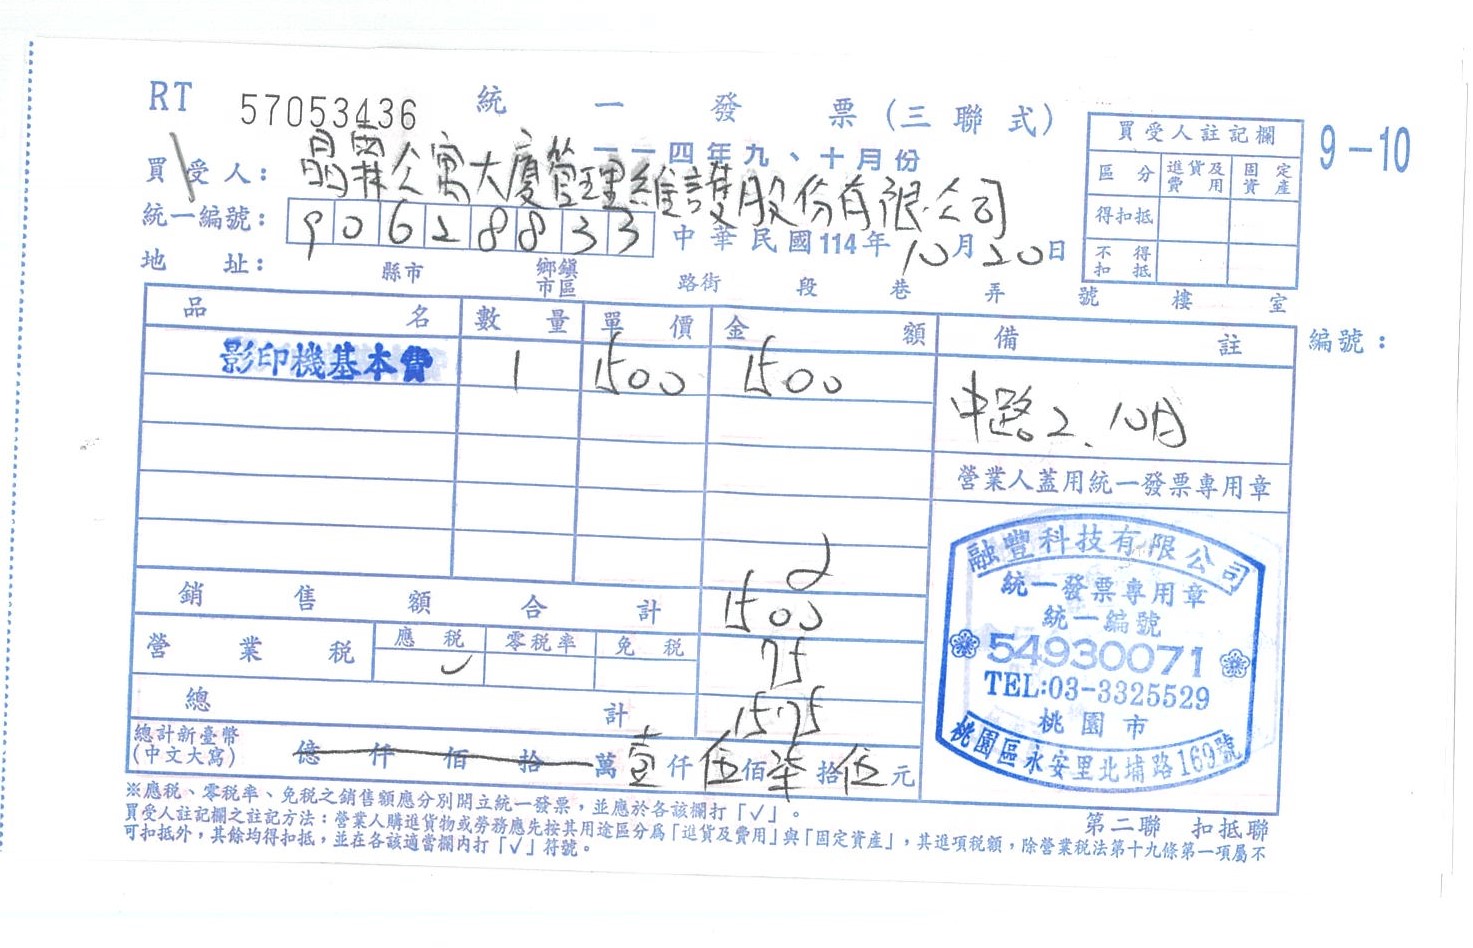 RT 57053436 統一發票(三聯式)
一一四年九、十月份
9-10
買受人註記欄
區分 進貨及費用 固定資產
得扣抵
不得扣抵
買受人: 晶霖公寓大廈管理維護股份有限公司
統一編號: 90628833 中華民國114年10月20日
地址: 縣市 鄉鎮市區 路街 段 巷 弄 號 樓 室
品名 數量 單價 金額 備註 編號:
影印機基本費 1 1500 1500
中路2、10月
營業人蓋用統一發票專用章
銷售額合計 1500
營業稅 應稅 零稅率 免稅 75
✓
總計 1575
總計新臺幣(中文大寫) 億仟佰拾萬壹仟伍佰柒拾伍元
融豐科技有限公司
統一發票專用章
統一編號
54930071
TEL:03-3325529
桃園市
桃園區永安里北埔路169號
※應稅、零稅率、免稅之銷售額應分別開立統一發票,並應於各該欄打「✓」。
第二聯 扣抵聯
買受人註記欄之註記方法:營業人購進貨物或勞務應先按其用途區分為「進貨及費用」與「固定資產」,其進項稅額,除營業稅法第十九條第一項屬不
可扣抵外,其餘均得扣抵,並在各該適當欄內打「✓」符號。